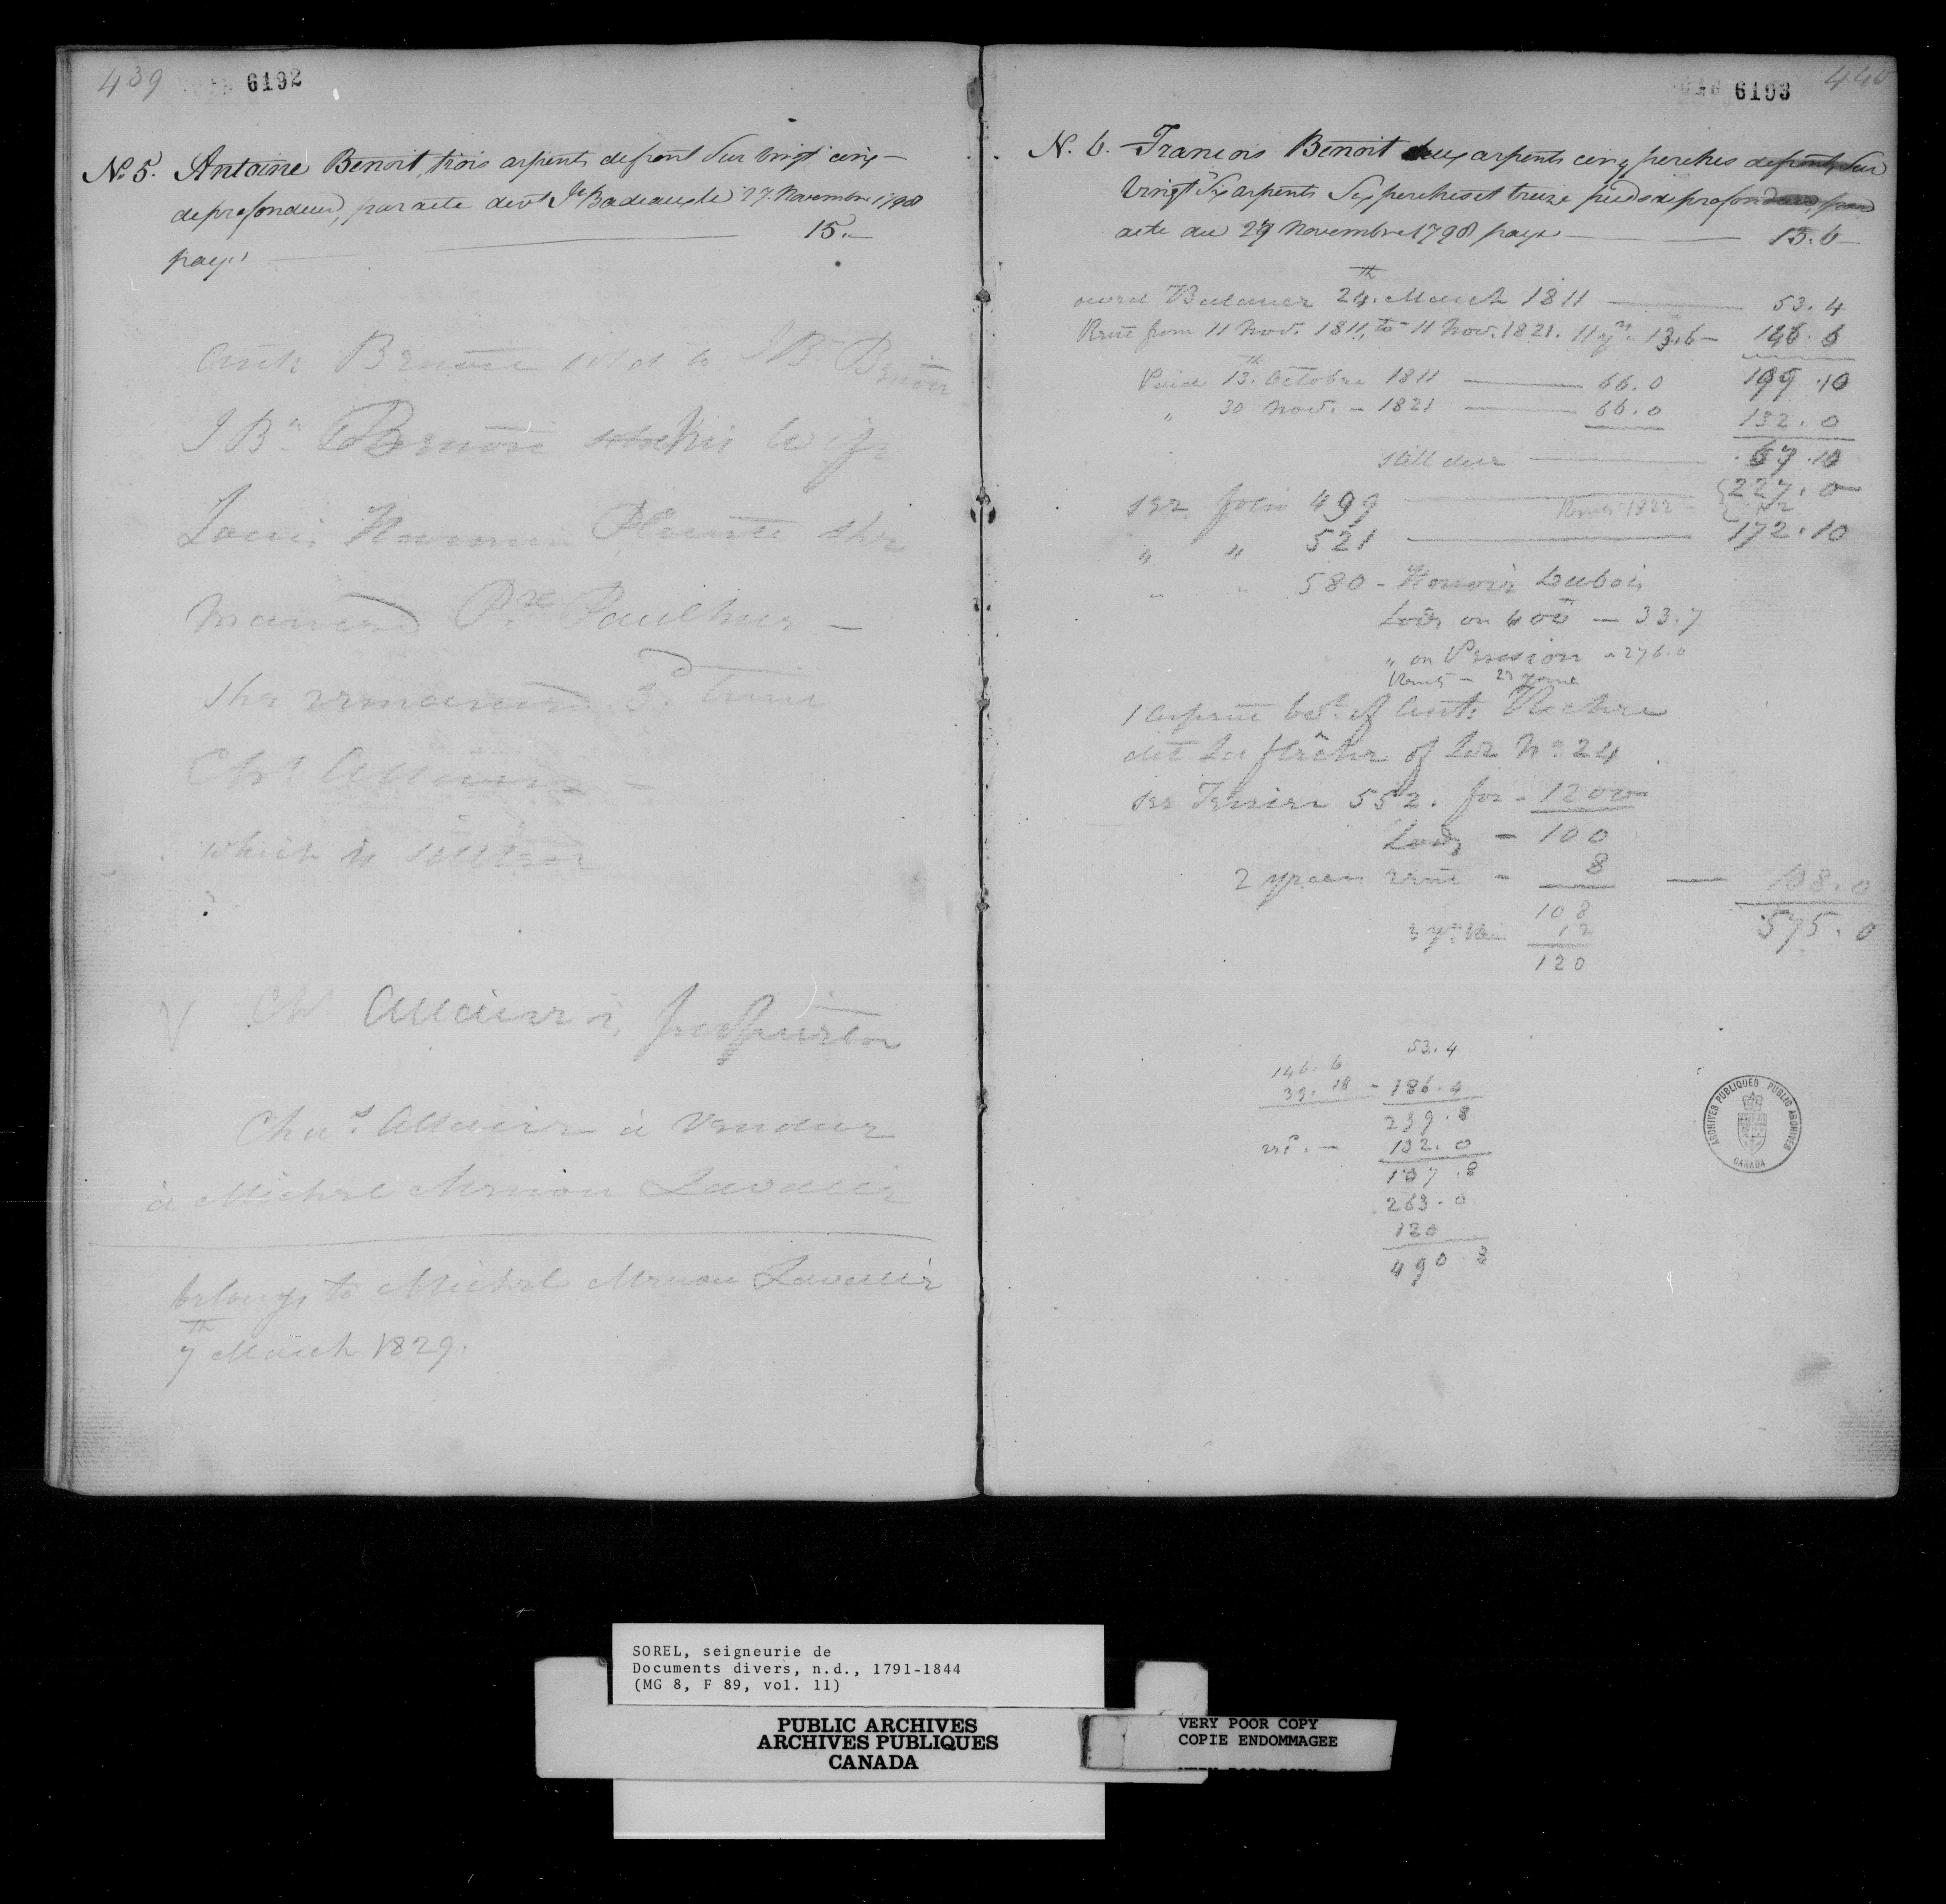 439
6192
No 5. Antoine Benoit, trois arpents de front sur vingt cinq —
de profondeur, par acte devt Je Badeaux le 27. Novembre 1798
paye 15. —
Antt Benoit sold to J Bte Benoit
J Bte Benoit his Wife
Louise Plante she
married Pre Paulhus —
she remarried 3d time
Chs Allaire —
which is
Chs Allaire
Chas Allaire à Vendue
à Michel Menon Lavallée
belongs to Michel Menon Lavallée
7th March 1829.
6193
440
N. 6. Francois Benoit deux arpents cinq perches de front, sur
vingt six arpents six perches et treize pieds de profondeur, par
acte du 27 Novembre 1798 paye — 13.6 —
owed Balance 24th March 1811 — 53.4
Rent from 11 Nov. 1811, to 11 Nov. 1821. 11 yrs 13.6 — 146.6
Paid 13th Octobre 1811 — 66.0 199.10
" 30 Nov. - 1821 — 66.0 132.0
still due — 67.10
see folio 499 — Rent 1822 227.0
" " 521 — 172.10
" " 580 - Honoré Dubois
Lods on 400 — 33.7
" on Pension - 276.0
1 arpent bot of Antt
dit La flêche of Lot No 24
see Terrier 552. for - 1200
Lods - 100
2 years rent - 8 — 108.0
108 575.0
12
120
53.4
146.6
39.18 - 186.4
239.8
132.0
107.8
263.0
120
490 8
ARCHIVES PUBLIQUES PUBLIC ARCHIVES
CANADA
SOREL, seigneurie de
Documents divers, n.d., 1791-1844
(MG 8, F 89, vol. 11)
PUBLIC ARCHIVES
ARCHIVES PUBLIQUES
CANADA
VERY POOR COPY
COPIE ENDOMMAGEE